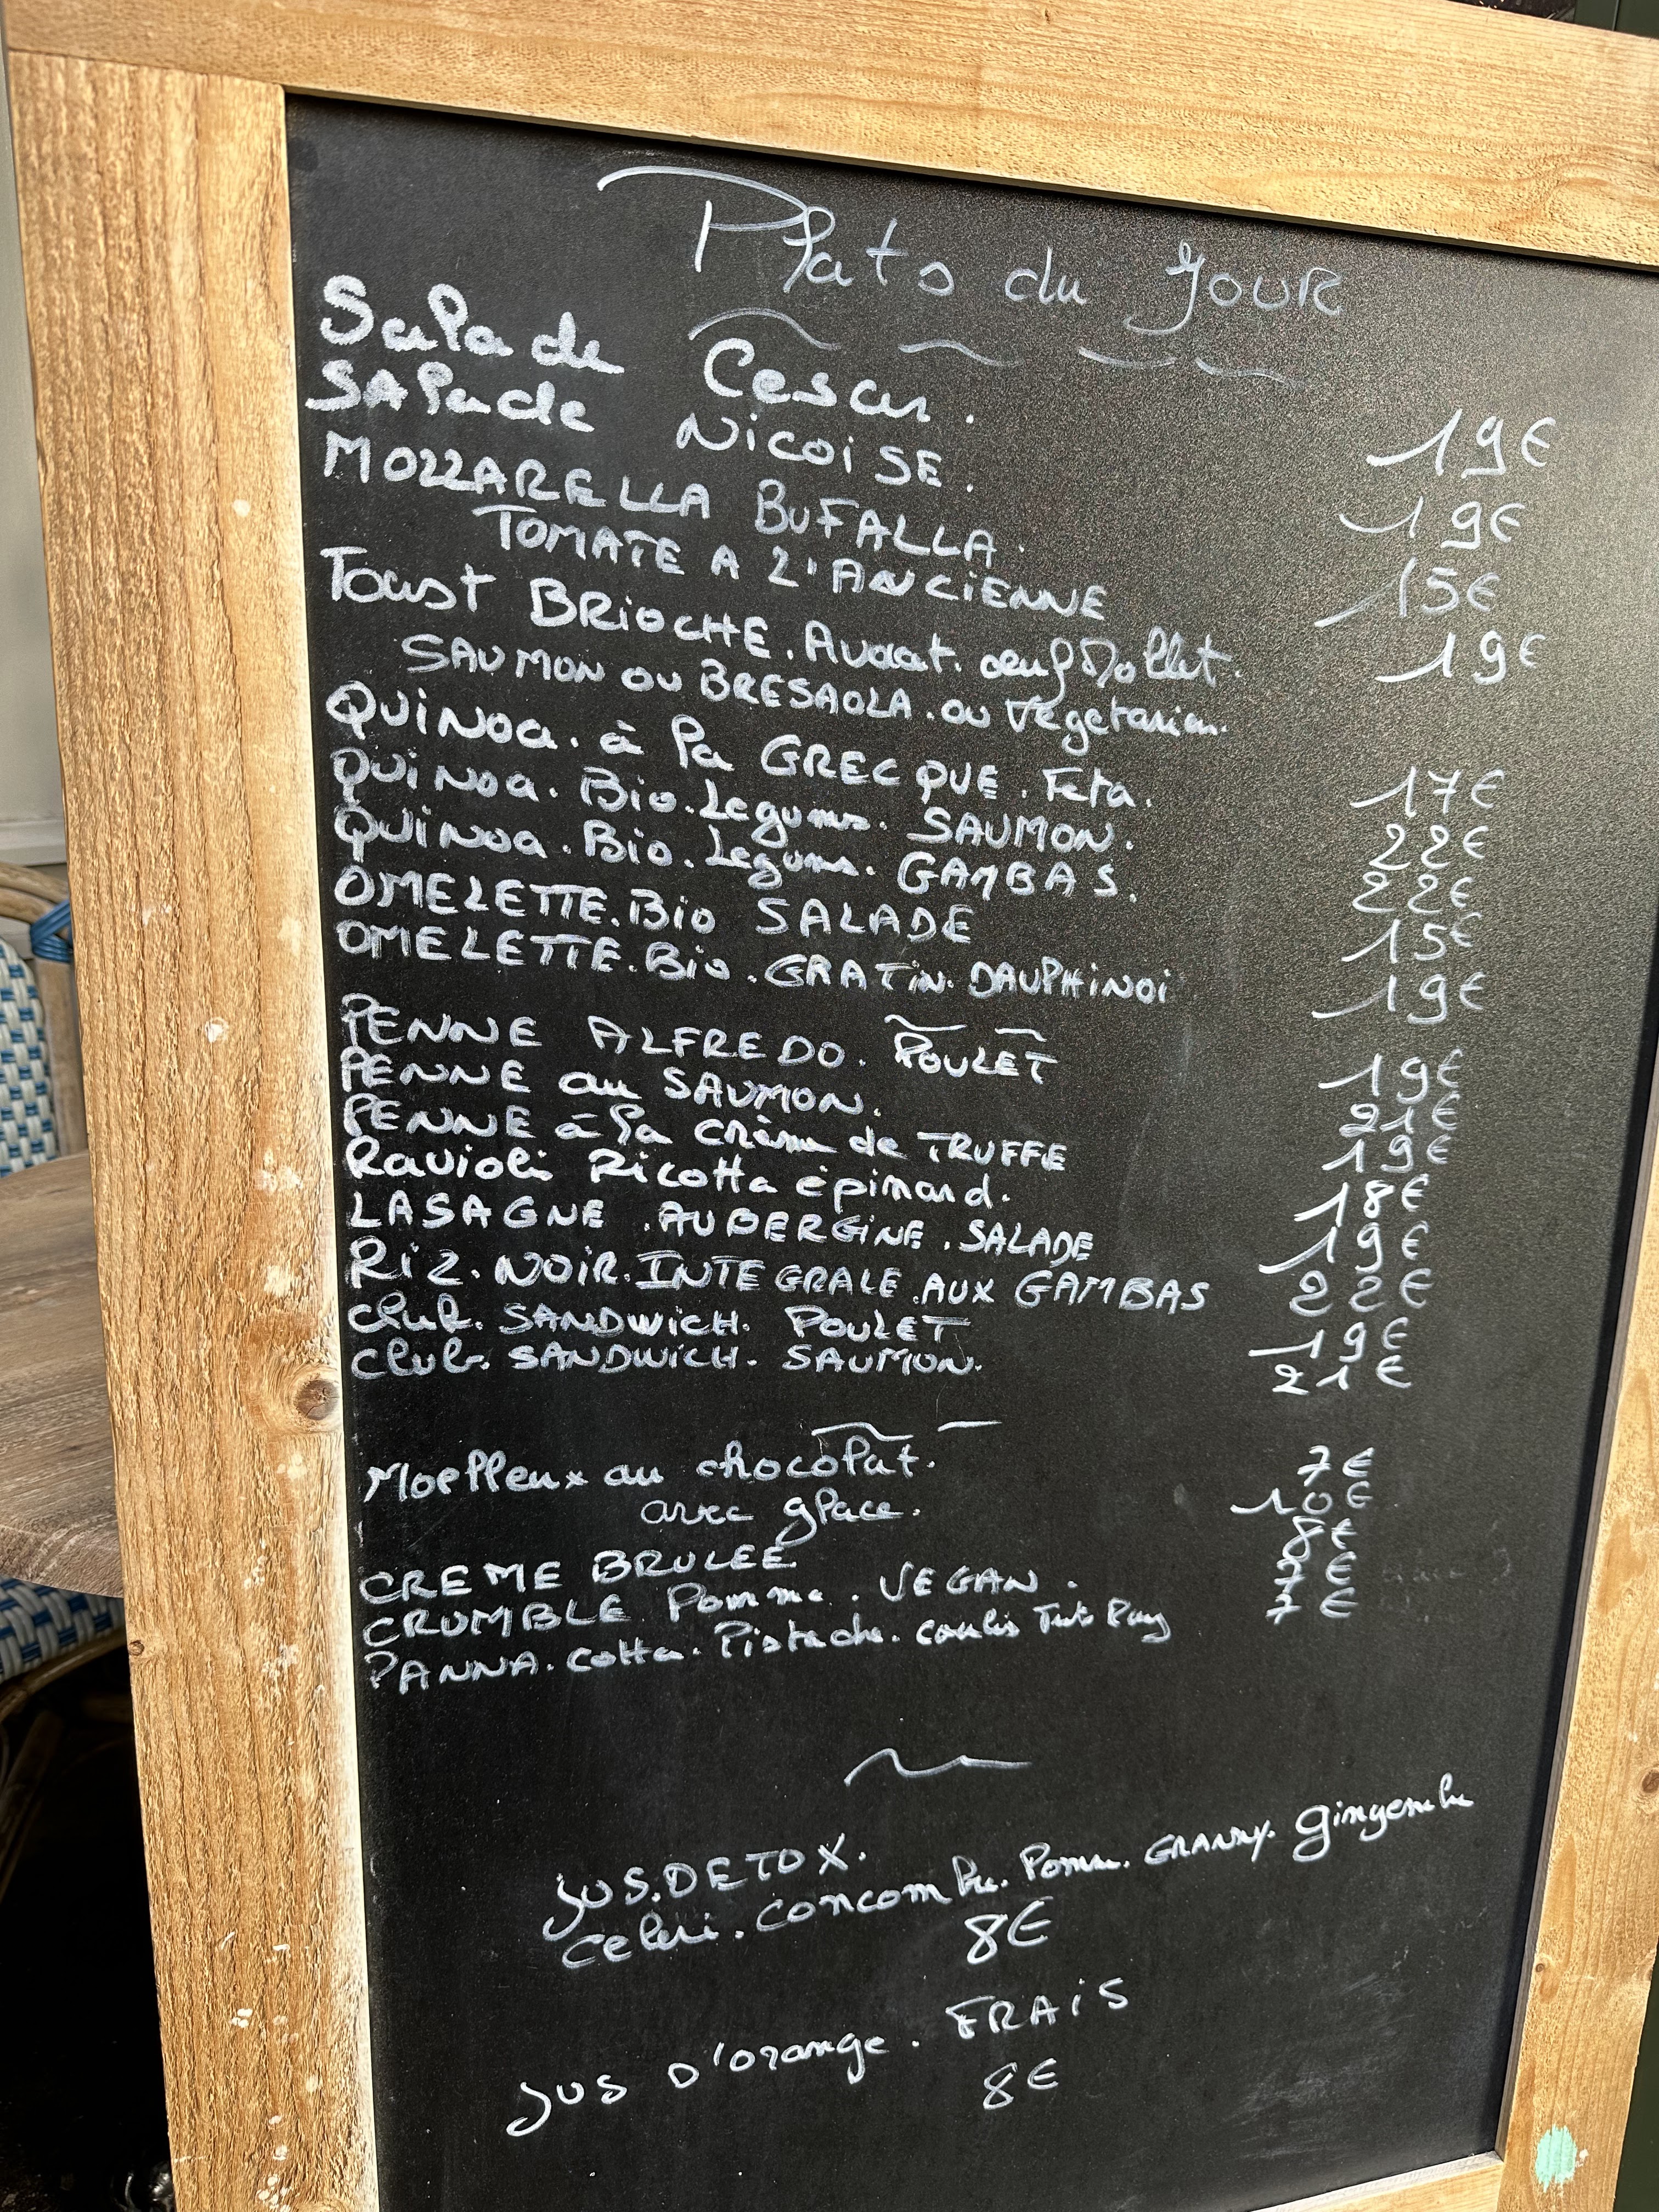 Plats du Jour
Salade Cesar. 19€
SALade NicoiSE. 19€
MOZZARELLA BUFALLA. 15€
TOMATE A L'ANCIENNE
Toast BRiOCHE. Avocat. oeuf Mollet. 19€
SAUMON OU BRESAOLA. ou Vegetarien.
QUiNOa. à la GRECQUE. Feta. 17€
QUiNOa. Bio. Legumes. SAUMON. 22€
QUiNOa. Bio. Legums. GAMBAS. 22€
OMELETTE. Bio SALADE 15€
OMELETTE. Bio. GRATiN. DAUPHiNOi 19€
PENNE ALFREDO. POULET 19€
PENNE au SAUMON. 21€
PENNE à la Crème de TRUFFE 19€
Ravioli Ricotta épinard. 18€
LASAGNE. AUBERGiNE. SALADE 19€
RiZ. NOiR. INTEGRALE. AUX GAMBAS 22€
Club. SANDWiCH. POULET 19€
Club. SANDWiCH. SAUMON. 21€
Moelleux au chocolat. 7€
avec glace. 10€
CREME BRULEE 8€
CRUMBLE Pomme. VEGAN. €
PANNA. Cotta. Pistache. coulis 7€
JUS. DETOX.
Celeri. Concombre. Pomme. GRANNY. Gingembre
8€
JUS D'orange. FRAiS
8€